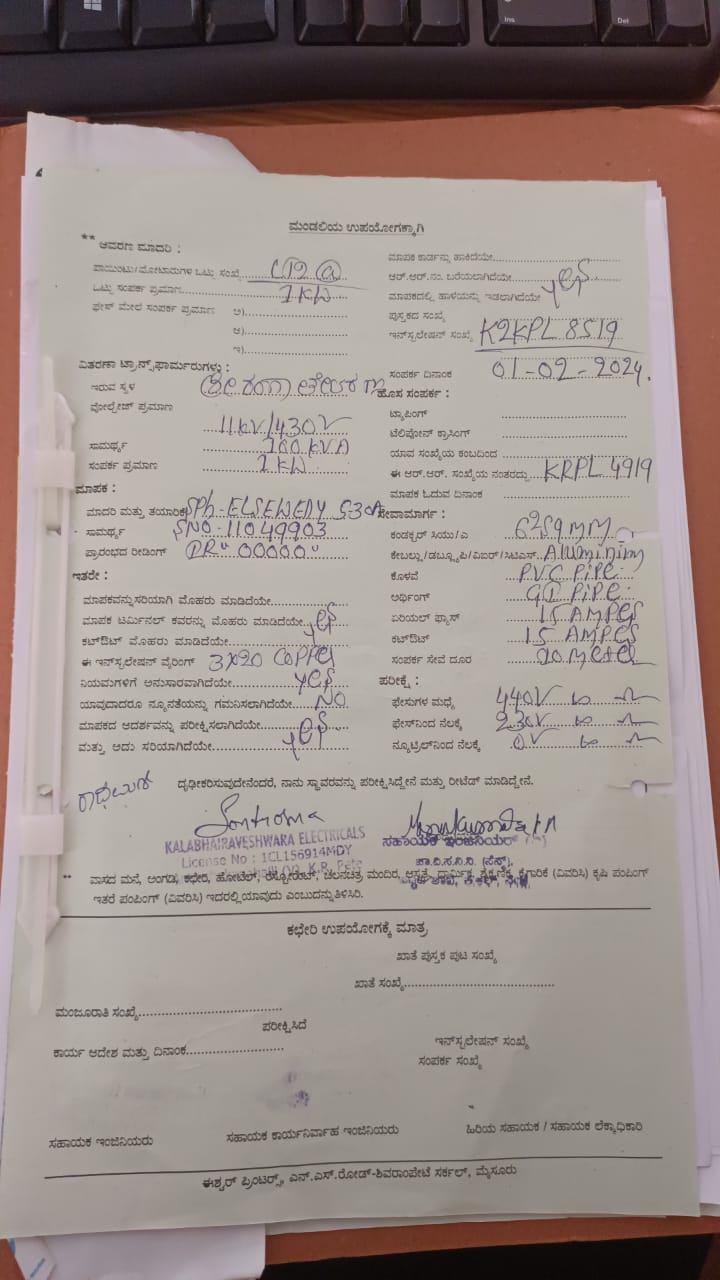 Ins
Del
ಮಂಡಲಿಯ ಉಪಯೋಗಕ್ಕಾಗಿ
** ಆವರಣ ಮಾದರಿ :
ಪಾಯಿಂಟು/ಮೋಟಾರುಗಳ ಒಟ್ಟು ಸಂಖ್ಯೆ
ಒಟ್ಟು ಸಂಪರ್ಕ ಪ್ರಮಾಣ 1KW
ಫೇಸ್ ಮೇಲೆ ಸಂಪರ್ಕ ಪ್ರಮಾಣ ಅ)
ಆ)
ಇ)
ವಿತರಣಾ ಟ್ರಾನ್ಸ್‌ಫಾರ್ಮರುಗಳು :
ಇರುವ ಸ್ಥಳ
ವೋಲ್ಟೇಜ್ ಪ್ರಮಾಣ 11KV/430V
ಸಾಮರ್ಥ್ಯ 100 KVA
ಸಂಪರ್ಕ ಪ್ರಮಾಣ 1KW
ಮಾಪಕ :
ಮಾದರಿ ಮತ್ತು ತಯಾರಿಕೆ Sph- ELSEWEDY 5-30A
ಸಾಮರ್ಥ್ಯ SNO-11049903
ಪ್ರಾರಂಭದ ರೀಡಿಂಗ್ DR" 00000"
ಇತರೇ :
ಮಾಪಕವನ್ನು ಸರಿಯಾಗಿ ಮೊಹರು ಮಾಡಿದೆಯೇ
ಮಾಪಕ ಟರ್ಮಿನಲ್ ಕವರನ್ನು ಮೊಹರು ಮಾಡಿದೆಯೇ yes
ಕಟ್‌ಔಟ್ ಮೊಹರು ಮಾಡಿದೆಯೇ
ಈ ಇನ್‌ಸ್ಟಲೇಷನ್ ವೈರಿಂಗ್ 3X20 COPPER
ನಿಯಮಗಳಿಗೆ ಅನುಸಾರವಾಗಿದೆಯೇ yes
ಯಾವುದಾದರೂ ನ್ಯೂನತೆಯನ್ನು ಗಮನಿಸಲಾಗಿದೆಯೇ NO
ಮಾಪಕದ ಆದರ್ಶವನ್ನು ಪರೀಕ್ಷಿಸಲಾಗಿದೆಯೇ
ಮತ್ತು ಅದು ಸರಿಯಾಗಿದೆಯೇ yes
ಮಾಪಕ ಕಾರ್ಡನ್ನು ಹಾಕಿದೆಯೇ
ಆರ್.ಆರ್.ನಂ. ಬರೆಯಲಾಗಿದೆಯೇ yes
ಮಾಪಕದಲ್ಲಿ ಹಾಳೆಯನ್ನು ಇಡಲಾಗಿದೆಯೇ
ಪುಸ್ತಕದ ಸಂಖ್ಯೆ
ಇನ್‌ಸ್ಟಲೇಷನ್ ಸಂಖ್ಯೆ K2KPL 8519
ಸಂಪರ್ಕ ದಿನಾಂಕ 01-02-2024.
ಹೊಸ ಸಂಪರ್ಕ :
ಟ್ಯಾಪಿಂಗ್
ಟೆಲಿಫೋನ್ ಕ್ರಾಸಿಂಗ್
ಯಾವ ಸಂಖ್ಯೆಯ ಕಂಬದಿಂದ
ಈ ಆರ್.ಆರ್. ಸಂಖ್ಯೆಯ ನಂತರದ್ದು KRPL 4919
ಮಾಪಕ ಓದುವ ದಿನಾಂಕ
ಸೇವಾಮಾರ್ಗ :
ಕಂಡಕ್ಟರ್ ಸಿಯು/ಎ
ಕೇಬಲ್ಲು/ಡಬ್ಲ್ಯೂಪಿ/ವಿಐಆರ್/ಸಿಟಿಎಸ್ Aluminim
ಕೊಳವೆ PVC PiPe
ಅರ್ಥಿಂಗ್ GI PiPe
ಏರಿಯಲ್ ಫ್ಯೂಸ್ 15 AMPES
ಕಟ್‌ಔಟ್ 15 AMPES
ಸಂಪರ್ಕ ಸೇವೆ ದೂರ 20 Meter
ಪರೀಕ್ಷೆ :
ಫೇಸುಗಳ ಮಧ್ಯೆ 440V
ಫೇಸ್‌ನಿಂದ ನೆಲಕ್ಕೆ 230V
ನ್ಯೂಟ್ರಲ್‌ನಿಂದ ನೆಲಕ್ಕೆ 0V
ದೃಢೀಕರಿಸುವುದೇನೆಂದರೆ, ನಾನು ಸ್ಥಾವರವನ್ನು ಪರೀಕ್ಷಿಸಿದ್ದೇನೆ ಮತ್ತು ರೀಟೆಡ್ ಮಾಡಿದ್ದೇನೆ.
KALABHAIRAVESHWARA ELECTRICALS
License No : 1CL156914MDY
K.R. Pete
ಸಹಾಯಕ ಇಂಜಿನಿಯರ್
** ವಾಸದ ಮನೆ, ಅಂಗಡಿ, ಕಛೇರಿ, ಹೋಟೆಲ್, ರೆಸ್ಟೋರೆಂಟ್, ಚಲನಚಿತ್ರ ಮಂದಿರ, ಆಸ್ಪತ್ರೆ, ಧಾರ್ಮಿಕ, ಶೈಕ್ಷಣಿಕ, ಕೈಗಾರಿಕೆ (ವಿವರಿಸಿ) ಕೃಷಿ ಪಂಪಿಂಗ್
ಇತರೆ ಪಂಪಿಂಗ್ (ವಿವರಿಸಿ) ಇದರಲ್ಲಿ ಯಾವುದು ಎಂಬುದನ್ನು ತಿಳಿಸಿರಿ.
ಕಛೇರಿ ಉಪಯೋಗಕ್ಕೆ ಮಾತ್ರ
ಖಾತೆ ಪುಸ್ತಕ ಪುಟ ಸಂಖ್ಯೆ
ಖಾತೆ ಸಂಖ್ಯೆ
ಮಂಜೂರಾತಿ ಸಂಖ್ಯೆ
ಪರೀಕ್ಷಿಸಿದೆ
ಕಾರ್ಯ ಆದೇಶ ಮತ್ತು ದಿನಾಂಕ
ಇನ್‌ಸ್ಟಲೇಷನ್ ಸಂಖ್ಯೆ
ಸಂಪರ್ಕ ಸಂಖ್ಯೆ
ಸಹಾಯಕ ಇಂಜಿನಿಯರು
ಸಹಾಯಕ ಕಾರ್ಯನಿರ್ವಾಹ ಇಂಜಿನಿಯರು
ಹಿರಿಯ ಸಹಾಯಕ / ಸಹಾಯಕ ಲೆಕ್ಕಾಧಿಕಾರಿ
ಈಶ್ವರ್ ಪ್ರಿಂಟರ್ಸ್, ಎನ್.ಎಸ್.ರೋಡ್-ಶಿವರಾಂಪೇಟೆ ಸರ್ಕಲ್, ಮೈಸೂರು